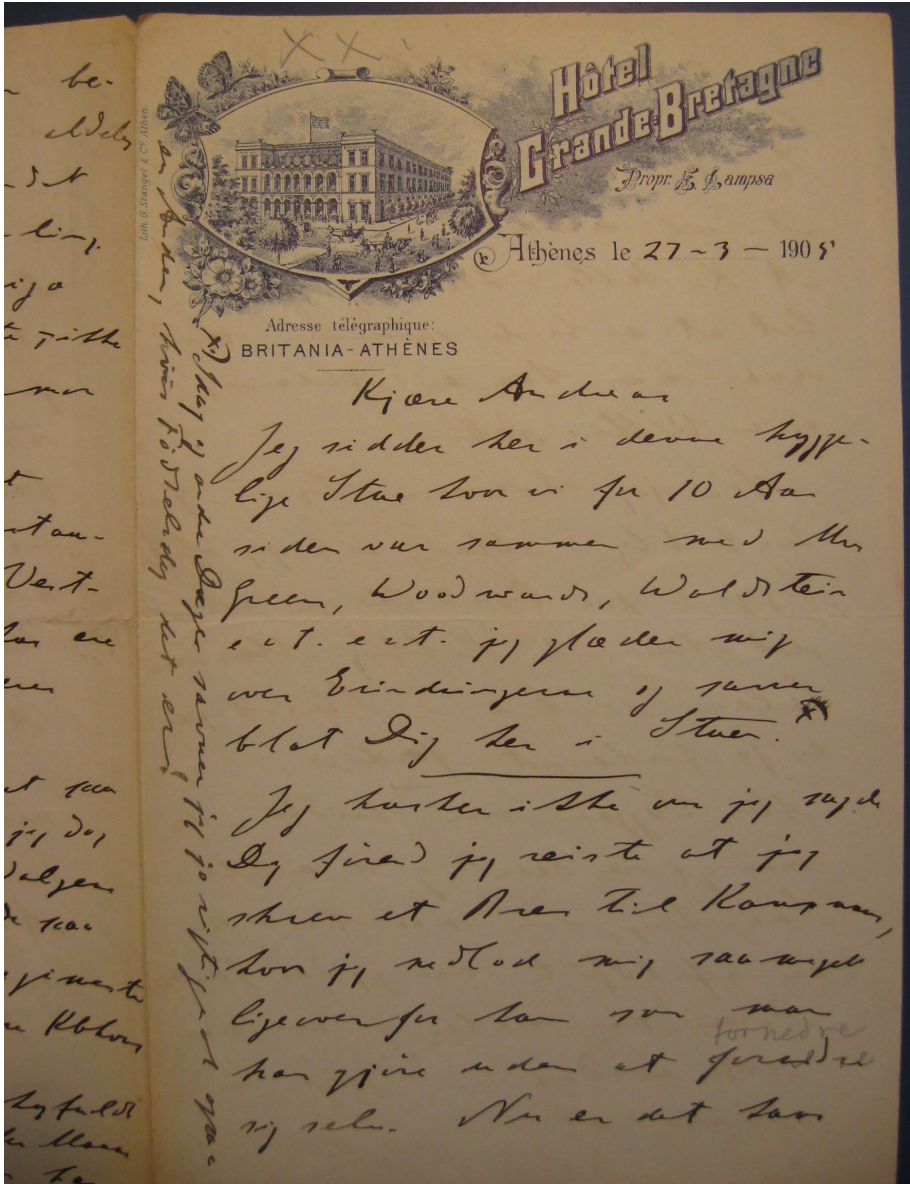 XX
Hôtel
Grande-Bretagne
Propr. E. Lampsa
Lith. G. Stangel & Cº Athen
Athènes le 27-3-1905
Adresse télégraphique:
BRITANIA-ATHÈNES
Kjære Andreas
Jeg sidder her i denne hygge-
lige Stue hvor vi for 10 Aar
siden var sammen med Mrs
Green, Woodwards, Waldstein
ect. ect. jeg glæder mig
over Erindringerne og savner
blot Dig her i Stuen. x
Jeg husker ikke om jeg sagde
Dig førend jeg reiste at jeg
skrev et Brev til Kampmann,
hvor jeg nedlod mig saameget
ligeoverfor ham som man
fornedre
kan gjøre uden at fornedre
sig selv. Nu er det hans
x) Idag og andre Dage savner jeg jo rigtignok ogsaa
en Anden, hvis Fødselsdag det er!
be-
aldeles
ikke
mor
Vest-
ere
saa
jeg dog
saa
Kbhvn